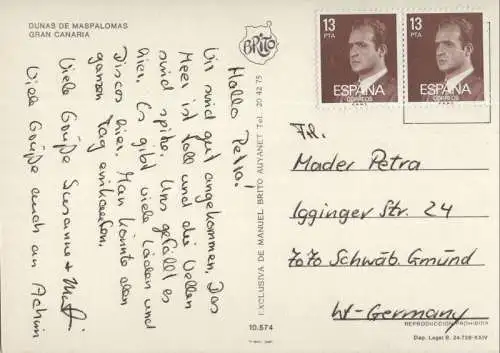 DUNAS DE MASPALOMAS
GRAN CANARIA
BRITO
Hallo Petra!
Wir sind gut angekommen. Das
Meer ist toll und die Wellen
sind spitze. Uns gefällt es
hier. Es gibt viele Läden und
Discos hier. Man könnte den
ganzen Tag einkaufen.
Viele Grüße Susanne +
Viele Grüße auch an Achim
EXCLUSIVA DE MANUEL BRITO AUYANET Tel. 20 42 75
10.574
13
PTA
ESPAÑA
CORREOS
13
PTA
ESPAÑA
CORREOS
Frl.
Mader Petra
Igginger Str. 24
7070 Schwäb. Gmünd
W-Germany
REPRODUCCION PROHIBIDA
Dep. Legal B. 24-728-XXIV